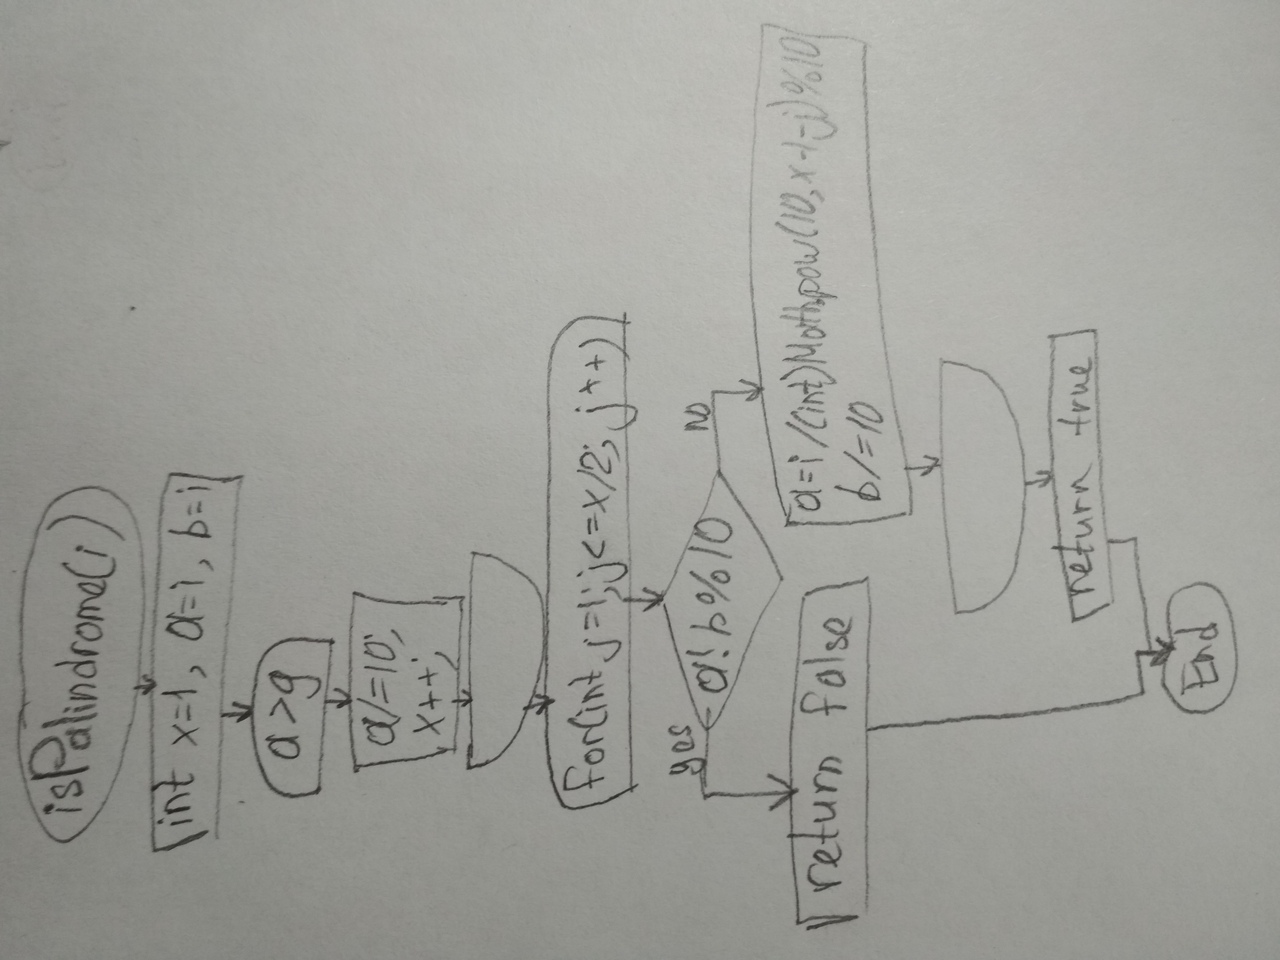 isPalindroma(i)
int x=1, a=i, b=i
a>9
a/=10;
x++;
for(int j=1; j<=x/2; j++)
a! b%10
yes
no
return false
a=i/(int)Math.pow(10, x-1-j)%10
b/=10
return true
End